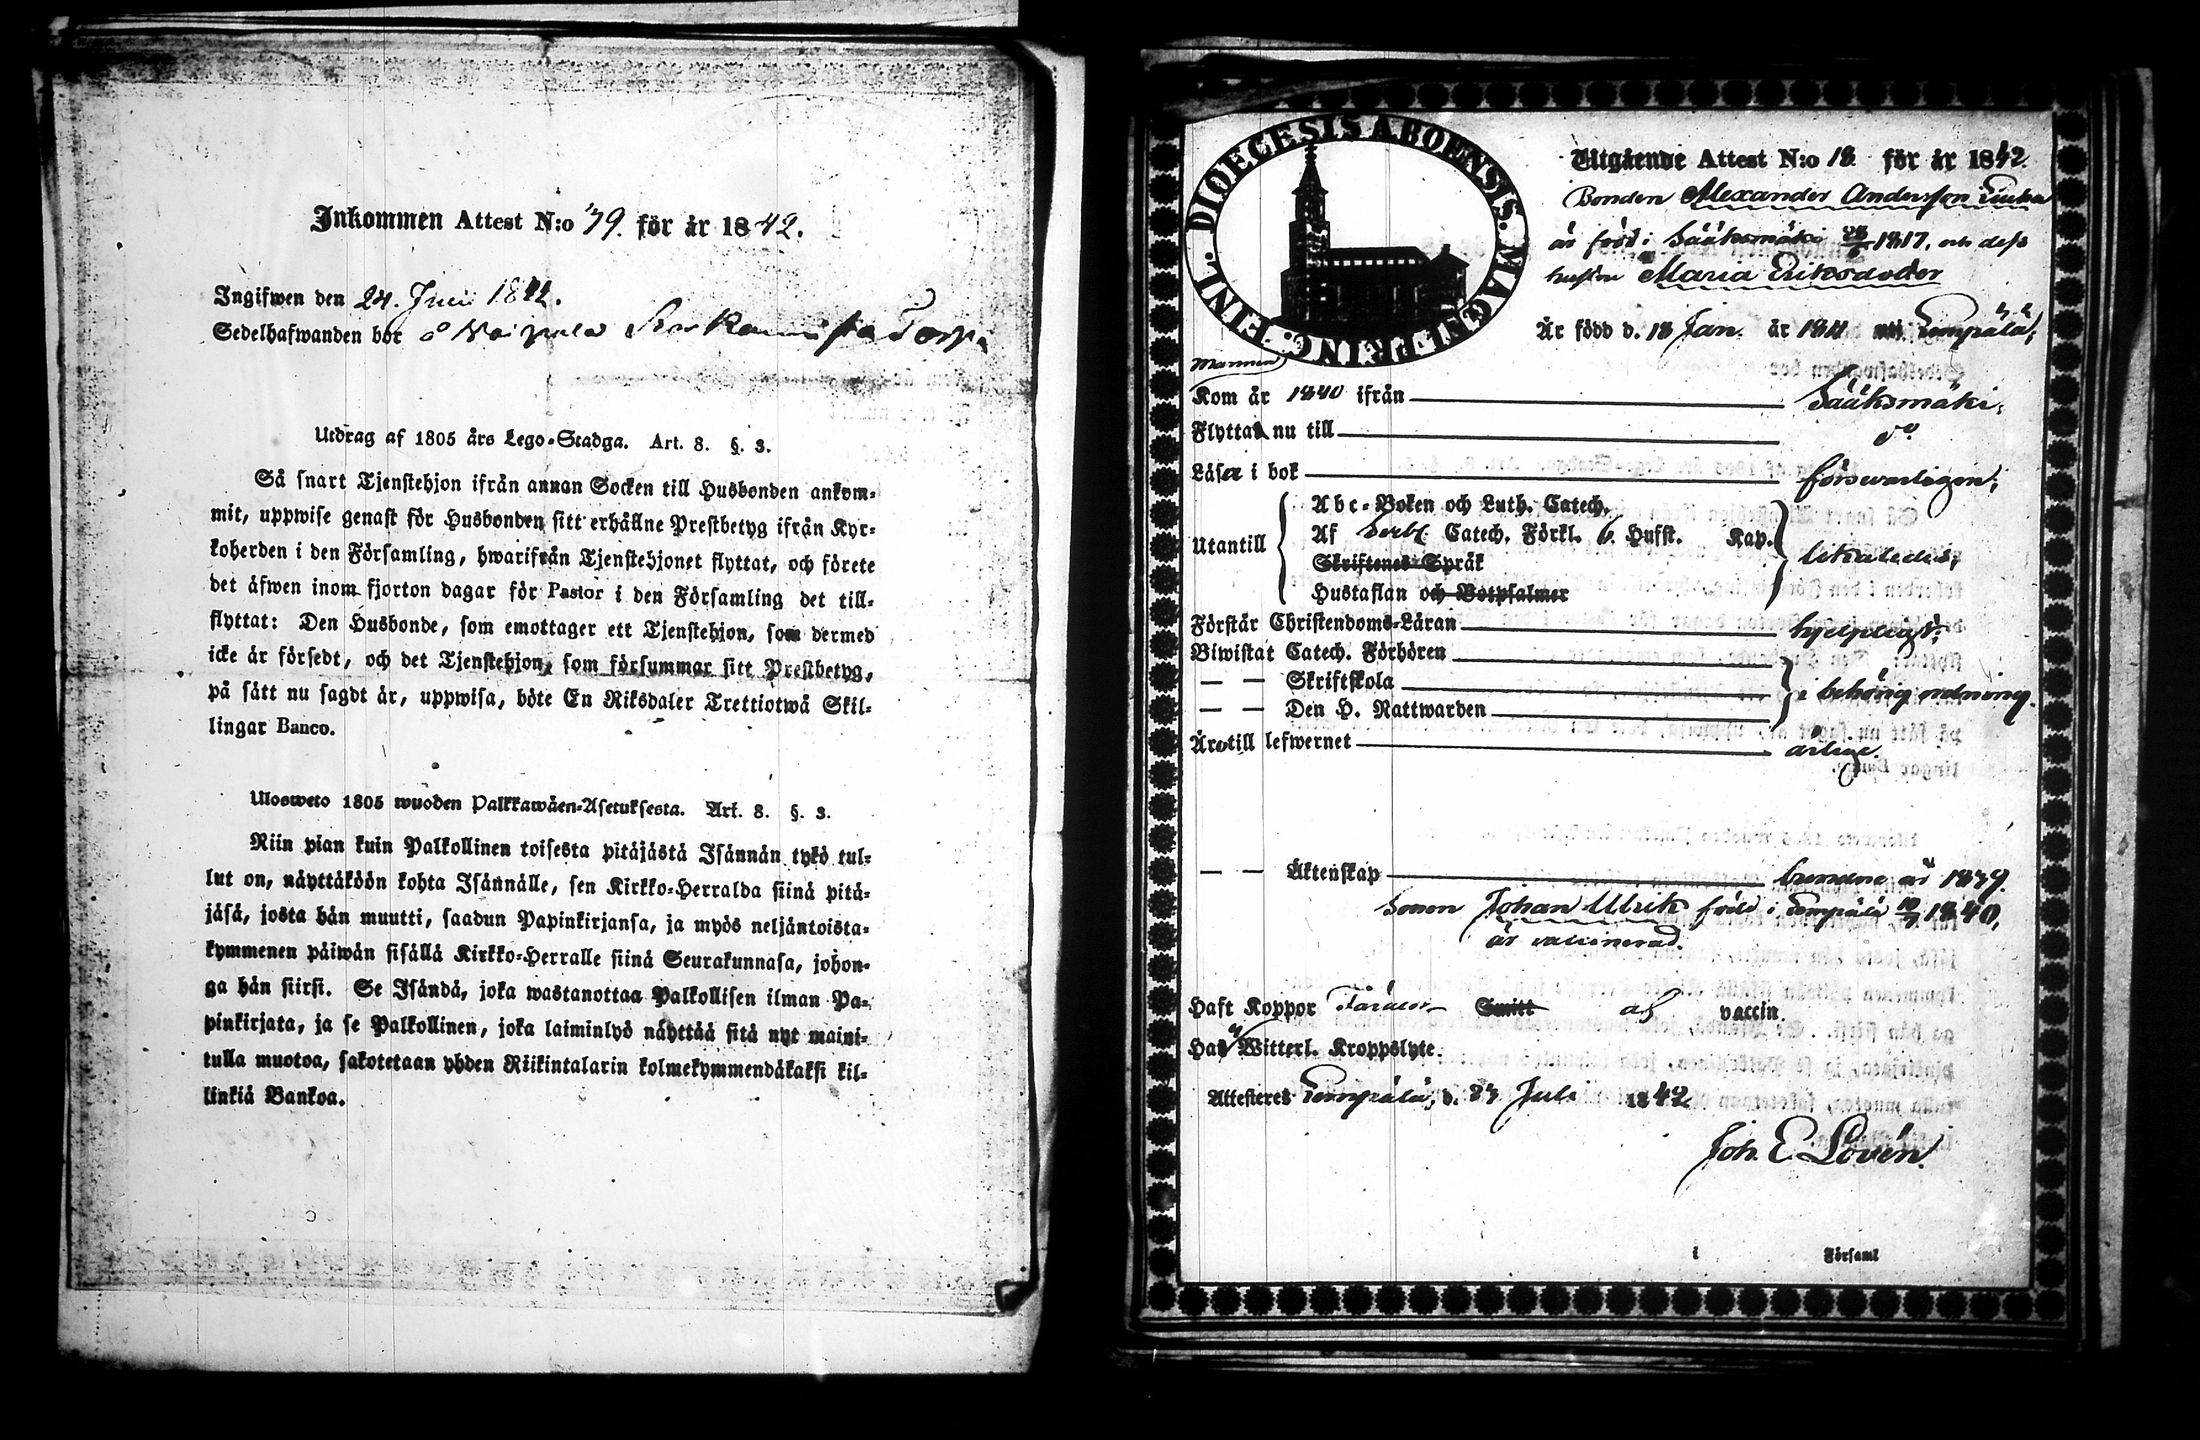 Inkommen Attest N:o 79. för år 1842.
Ingifwen den 24. Juli 1842.
Sedelhafwanden bor å Torp.
Utdrag af 1805 års Lego-Stadga. Art. 8. §. 3.
Så snart Tjenstehjon ifrån annan Socken till Husbonden ankom-
mit, uppwise genast för Husbonden sitt erhållne Prestbetyg ifrån Kyr-
koherden i den Församling, hwarifrån Tjenstehjonet flyttat, och förete
det äfwen inom fjorton dagar för Pastor i den Församling det till-
flyttat: Den Husbonde, som emottager ett Tjenstehjon, som dermed
icke är försedt, och det Tjenstehjon, som försummar sitt Prestbetyg,
på sätt nu sagdt är, uppwisa, böte En Riksdaler Trettiotwå Skil-
lingar Banco.
Ulosweto 1805 wuoden Palkkawäen-Asetuksesta. Art. 8. §. 3.
Niin pian kuin Palkollinen toisesta pitäjästä Isännän tykö tul-
lut on, näyttäköön kohta Isännälle, sen Kirkko-Herralda siinä pitä-
jäsä, josta hän muutti, saadun Papinkirjansa, ja myös neljäntoista-
kymmenen päiwän sisällä Kirkko-Herralle siinä Seurakunnasa, johon-
ga hän siirsi. Se Isändä, joka wastanottaa Palkollisen ilman Pa-
pinkirjata, ja se Palkollinen, joka laiminlyö näyttää sitä nyt maini-
tulla muotoa, sakotetaan yhden Riikintalarin kolmekymmendäkaksi kil-
linkiä Bankoa.
DIOECESIS ABOENSIS. MAGNI PRINC. FINL.
Utgående Attest N:o 18 för år 1842.
Bonden Alexander Andersson
är född i Sääksmäki 1817, och dess
hustru Maria Eriksdoter
Är född d. 18 Jan. år 1811 uti Lempälä;
Mannen
Kom år 1840 ifrån Sääksmäki;
Flyttar nu till do
Läsa i bok försvarligen;
Utantill
Abc-Boken och Luth. Catech.
Af Catech. Förkl. 6. Hufst. Kap.
Skriftenes Språk
Hustaflan och Botpsalmer
likaledes;
Förstår Christendoms-Läran hjelpligt;
Biwistat Catech. Förhören
— — Skriftskola
— — Den H. Nattwarden
i behörig ordning.
Äro till lefwernet ärlige.
— — Äktenskap år 1839.
Sonen Johan Ulrik född i Lempälä 1840,
är vaccinerad.
Haft Koppor Smitt af vaccin.
Has Witterl. Kroppslyte.
Attesteres Lempälä, d. 23 Juli 1842
Joh. E. Lovén.
i Församl